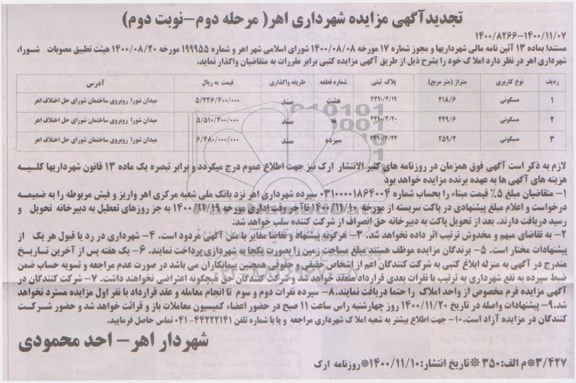 تجدیدآگهی مزایده شهرداری اهر( مرحله دوم-نوبت دوم)
۱۴۰۰/۸۲۶۶-۱۴۰۰/۱۱/۰۷
مستندا بماده ۱۳ آئین نامه مالی شهرداریها و مجوز شماره ۱۷ مورخه ۱۴۰۰/۰۸/۰۸ شورای اسلامی شهر اهر و شماره ۱۹۹۹۵۵ مورخه ۱۴۰۰/۰۸/۲۰ هیئت تطبیق مصوبات شورا،
شهرداری اهر در نظر دارد املاک خود را بشرح ذیل از طریق آگهی مزایده کتبی برابر مقررات به متقاضیان واگذار نماید.
ردیف نوع کاربری متراژ (متر مربع) پلاک ثبتی شماره قطعه طریقه واگذاری قیمت به ریال آدرس
۱ مسکونی ۲۱۸/۶ ۲۲۹۰/۴/۱۹ هشت سند ۵/۲۴۶/۴۰۰/۰۰۰ میدان شورا روبروی ساختمان شورای حل اختلاف اهر
۲ مسکونی ۲۲۹/۶ ۲۲۹۰/۴/۲۰ نه سند ۵/۵۱۰/۴۰۰/۰۰۰ میدان شورا روبروی ساختمان شورای حل اختلاف اهر
۳ مسکونی ۲۵۹/۲ سیزده سند ۶/۴۸۰/۰۰۰/۰۰۰ میدان شورا روبروی ساختمان شورای حل اختلاف اهر
لازم به ذکر است آگهی فوق همزمان در روزنامه های کثیر الانتشار ارک نیز جهت اطلاع عموم درج میگردد و برابر تبصره یک ماده ۱۳ قانون شهرداریها کلیه
هزینه های آگهی ها به عهده برنده مزایده خواهد بود
۱- متقاضیان مبلغ ۵٪ قیمت مبناء را بحساب شماره ۰۳۱۰۰۰۰۱۸۶۴۰۰۴ سپرده شهرداری اهر نزد بانک ملی شعبه مرکزی اهر واریز و فیش مربوطه را به ضمیمه
درخواست و اعلام مبلغ پیشنهادی در پاکت سربسته از مورخه ۱۴۰۰/۱۱/۱۰ تا آخر وقت اداری مورخه ۱۴۰۰/۱۱/۱۹ به جز روزهای تعطیل به دبیرخانه تحویل و
رسید دریافت دارند. بعد از تحویل پاکت به دبیرخانه حق انصراف از شرکت کننده سلب خواهد شد.
۲- به تقاضای مبهم و مخدوش ترتیب اثر داده نخواهد شد. ۳- هرگونه پیشنهاد و تقاضا مغایر با متن آگهی مردود است. ۴- شهرداری در رد یا قبول هر یک از
پیشنهادات مختار است. ۵- برندگان مزایده موظف هستند مبلغ مساحت زمین را بصورت یکجا به شهرداری پرداخت نمایند. ۶- یک هفته پس از آخرین تاریخ
مندرج در آگهی به منزله ابلاغ کتبی به شرکت کنندگان اعم از اشخاص حقیقی و حقوقی همچنین پیمانکاران می باشد در صورت عدم مراجعه و تسویه حساب ضمن
ضبط سپرده به نفع شهرداری به ترتیب با نفرات بعدی قرارداد منعقد خواهد شد و شرکت کنندگان حق هیچگونه اعتراضی نخواهند داشت. ۷- شرکت کنندگان در
آگهی مزایده فرم مخصوص از واحد املاک را حتما دریافت نمایند. ۸- سپرده نفرات دوم و سوم تا انجام معامله و عقد قرارداد با نفر اول مزایده مسترد نخواهد
شد. ۹- پیشنهادات واصله در تاریخ ۱۴۰۰/۱۱/۲۰ روز چهارشنبه راس ساعت ۱۱ صبح در حضور اعضاء کمیسیون معاملات باز و قرائت خواهد شد و حضور شرکت
کنندگان در مزایده آزاد است. ۱۰- جهت اطلاع بیشتر به شعبه املاک شهرداری مراجعه و یا با شماره تلفن ۴۴۲۲۲۱۴۱-۰۴۱ تماس حاصل فرمایید.
شهردار اهر- احد محمودی
۳/۴۲۷*م الف:۳۵۰ *تاریخ انتشار:۱۴۰۰/۱۱/۱۰*روزنامه ارک